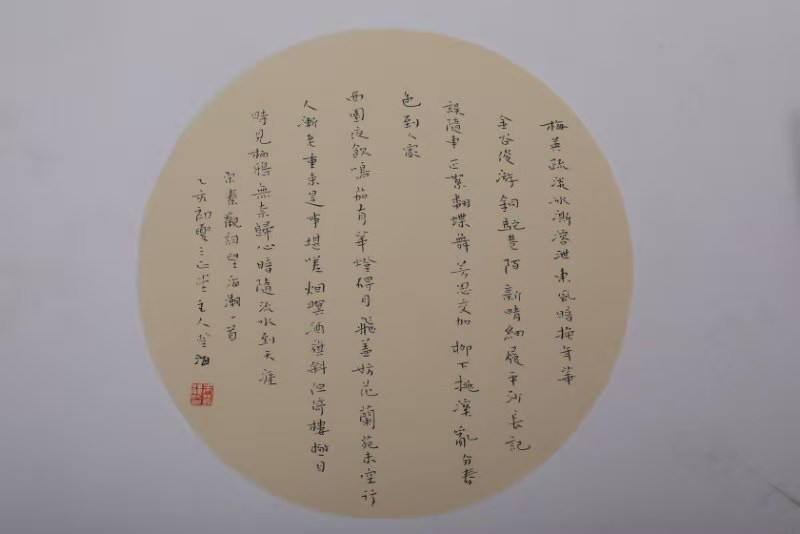 梅英疏淡冰澌溶泄東風暗換年華
金谷俊游銅駝巷陌新晴細履平沙長記
誤隨車正絮翻蝶舞芳思交加柳下桃溪亂分春
色到人家
西園夜飲鳴笳有華燈礙月飛蓋妨花蘭苑未空行
人漸老重來是事堪嗟烟暝酒旗斜但倚樓極目
時見棲鴉無奈歸心暗隨流水到天涯
宋秦觀詞望海潮一首
乙亥初夏三正堂主人登海